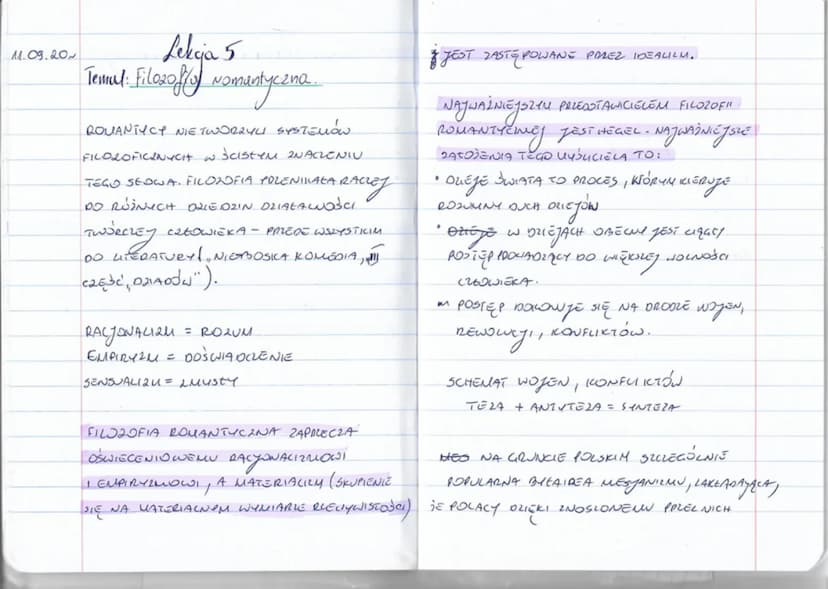 11.09.20~
Lekcja 5
Temat: Filozofia romantyczna.
ROMANTYCY NIE TWORZYLI SYSTEMÓW
FILOZOFICZNYCH W ŚCISŁYM ZNACZENIU
TEGO SŁOWA. FILOZOFIA PRZENIKAŁA RACZEJ
DO RÓŻNYCH DZIEDZIN DZIAŁALNOŚCI
TWÓRCZEJ CZŁOWIEKA – PRZEDE WSZYSTKIM
DO LITERATURY („NIEBOSKA KOMEDIA, III
CZĘŚĆ „DZIADÓW").
RACJONALIZM = ROZUM
EMPIRYZM = DOŚWIADCZENIE
SENSUALIZM = ZMYSŁY
FILOZOFIA ROMANTYCZNA ZAPRZECZA
OŚWIECENIOWEMU RACJONALIZMOWI
I EMPIRYZMOWI, A MATERIALIZM (SKUPIENIE
SIĘ NA MATERIALNYM WYMIARZE RZECZYWISTOŚCI)
JEST ZASTĘPOWANE PRZEZ IDEALIZM.
NAJWAŻNIEJSZYM PRZEDSTAWICIELEM FILOZOFII
ROMANTYCZNEJ JEST HEGEL. NAJWAŻNIEJSZE
ZAŁOŻENIA TEGO MYŚLICIELA TO:
• DZIEJE ŚWIATA TO PROCES, KTÓRYM KIERUJE
ROZUMNY DUCH DZIEJÓW
• DZIEJE W DZIEJACH OBECNY JEST CIĄGŁY
POSTĘP PROWADZĄCY DO WIĘKSZEJ WOLNOŚCI
CZŁOWIEKA.
• POSTĘP DOKONUJE SIĘ NA DRODZE WOJEN,
REWOLUCJI, KONFLIKTÓW.
SCHEMAT WOJEN, KONFLIKTÓW
TEZA + ANTYTEZA = SYNTEZA
NA GRUNCIE POLSKIM SZCZEGÓLNIE
POPULARNA BYŁA IDEA MESJANIZMU, ZAKŁADAJĄCA,
ŻE POLACY DZIĘKI ZNOSZONEMU PRZEZ NICH